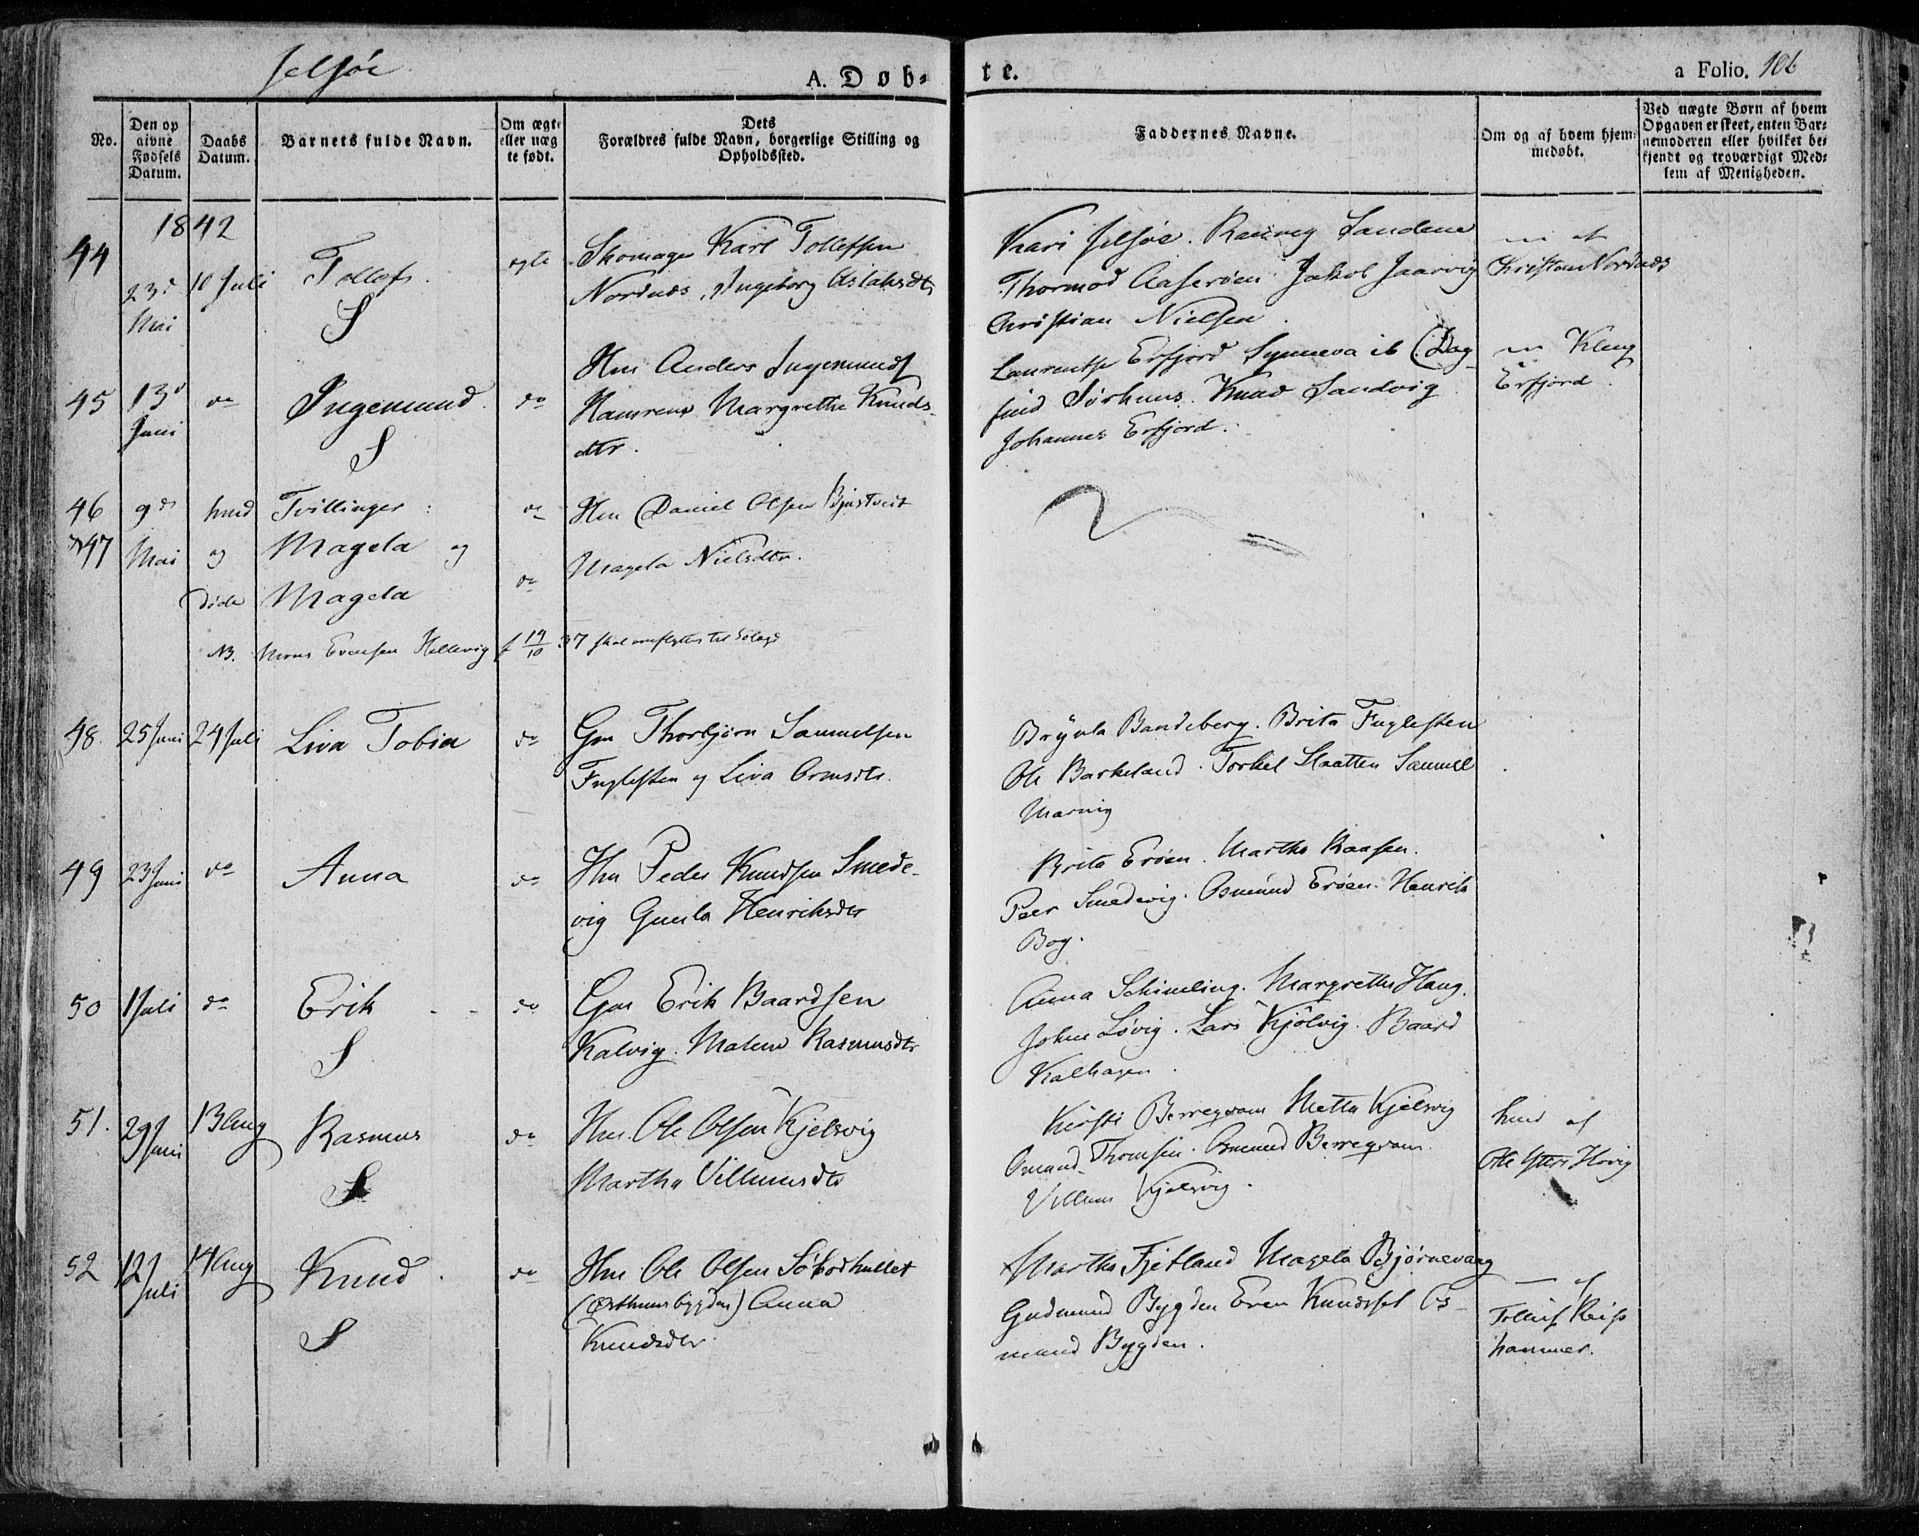 Jelsøe
A. Døb-
te.
a Folio. 106
No.
Den op
givne
Fødsels
Datum.
Daabs
Datum.
Barnets fulde Navn.
Om ægte
eller uæg
te født.
Dets
Forældres fulde Navn, borgerlige Stilling og
Opholdssted.
Faddernes Navne.
Om og af hvem hjem-
medøbt.
Ved uægte Børn af hvem
Opgaven er skeet, enten Bar-
nemoderen eller hvilket be-
kjendt og troværdigt Med-
lem af Menigheden.
1842
44
23d
Mai
10 Juli
Tollef
S
egte
Skomager Karl Tollefsen
Nordnes, Ingeborg Aslaksdtr
Kaari Jelsøe. Ranveg Sandene
Thormod Aaserøen Jakob Jaarvig
Christian Nielsen.
af
Christian Nordnes
45
13d
Juni
do
Ingemund.
S
do
Hm Anders Ingemunds
Hamrene Margrethe Knuds-
dtr.
Laurentse Erfjord Synneva ib Dag-
find Sørhuus. Knud Sandvig
Johannes Erfjord.
Kleng
Erfjord.
46
47
9d
Mai
hmd
og
døde
Tvillinger:
Magela og
Magela
do
do
Hm Daniel Olsen
Magela Nielsdtr.
NB. Evensen Hellevig f 19/10 37 skal omflyttes til
48.
25 Juni
24 Juli
Liva Tobia
do
Gm Thorbjørn Samuelsen
Fuglesten og Liva Ormsdtr.
Brynla Bandeberg. Brita Fuglesten
Ole Barkeland. Torkel Slaatten Samuel
Marvig
49
23 Juni
do
Anna
do
Hm Peder Knudsen Smede-
vig Gunla Henriksdtr
Brita Erøen. Martha Kaasen.
Peer Smedevig. Osmund Erøen. Henrik
Bog.
50
1 Juli
do
Erik
S
do
Gm Erik Baardsen
Kalvig. Malene Rasmusdtr
Anna Schimeling. Margrethe Haug.
John Løvig. Lars Kjölvig. Baard
Kalhagen.
51.
29 Juni
13 Aug
Rasmus
S
do
Hm. Ole Olsen Kjelsvig
Martha Villumsdtr
Kirsti Berregvam Metta Kjelsvig
Omund Thomsen. Osmund Berregvam.
Villum Kjelsvig.
hmd af
Ole Ytre Hovig
52
12 Juli
14 Aug
Knud
S
do
Hm. Ole Olsen
(Østhuusbygden) Anna
Knudsdtr.
Martha Fjetland Magela Bjørnevaag
Gudmund Bygden Even Knudssel Os-
mund Bygden.
af
Reis
hammer.